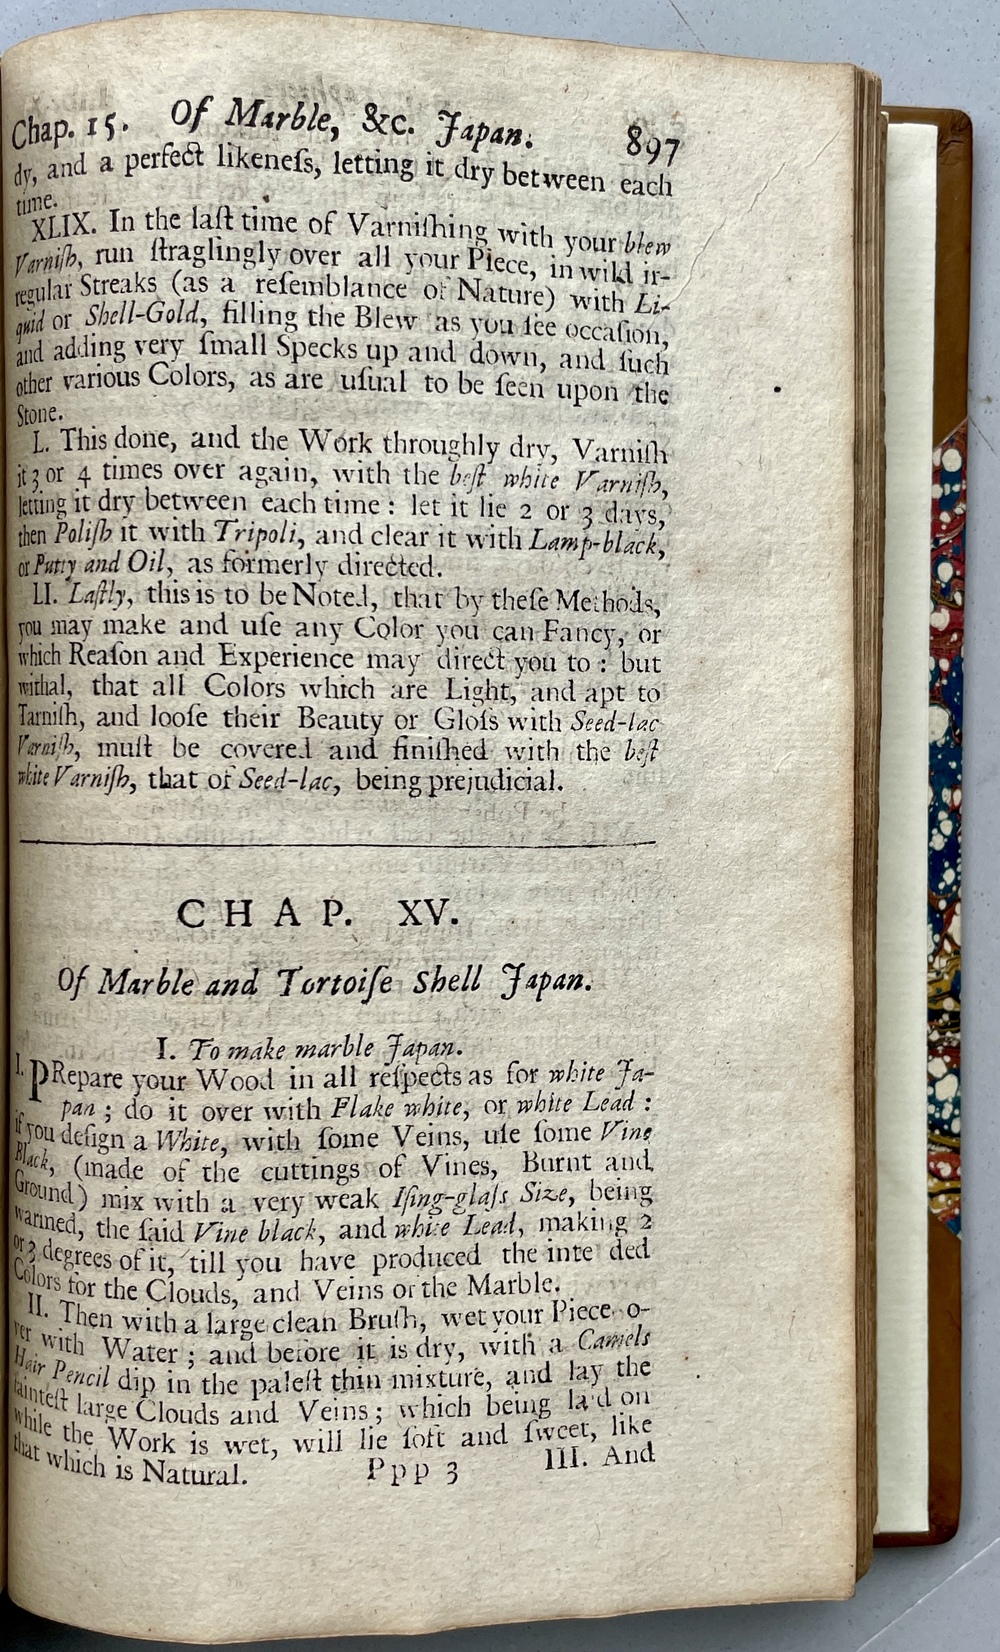 Chap. 15. Of Marble, &c. Japan. 897
dy, and a perfect likeneſs, letting it dry between each
time.
XLIX. In the laſt time of Varniſhing with your blew
Varniſh, run ſtraglingly over all your Piece, in wild ir-
regular Streaks (as a reſemblance of Nature) with Li-
quid or Shell-Gold, filling the Blew as you ſee occaſion,
and adding very ſmall Specks up and down, and ſuch
other various Colors, as are uſual to be ſeen upon the
Stone.
L. This done, and the Work throughly dry, Varniſh
it 3 or 4 times over again, with the beſt white Varniſh,
letting it dry between each time : let it lie 2 or 3 days,
then Poliſh it with Tripoli, and clear it with Lamp-black,
or Putty and Oil, as formerly directed.
LI. Laſtly, this is to be Noted, that by theſe Methods,
you may make and uſe any Color you can Fancy, or
which Reaſon and Experience may direct you to : but
withal, that all Colors which are Light, and apt to
Tarniſh, and looſe their Beauty or Gloſs with Seed-lac
Varniſh, muſt be covered and finiſhed with the beſt
white Varniſh, that of Seed-lac, being prejudicial.
CHAP. XV.
Of Marble and Tortoiſe Shell Japan.
I. To make marble Japan.
I. PRepare your Wood in all reſpects as for white Ja-
pan ; do it over with Flake white, or white Lead :
if you deſign a White, with ſome Veins, uſe ſome Vine
Black, (made of the cuttings of Vines, Burnt and
Ground) mix with a very weak Iſing-glaſs Size, being
warmed, the ſaid Vine black, and white Lead, making 2
or 3 degrees of it, till you have produced the inte ded
Colors for the Clouds, and Veins of the Marble.
II. Then with a large clean Bruſh, wet your Piece o-
ver with Water ; and before it is dry, with a Camels
Hair Pencil dip in the paleſt thin mixture, and lay the
fainteſt large Clouds and Veins ; which being laid on
while the Work is wet, will lie ſoft and ſweet, like
that which is Natural.
Ppp 3 III. And